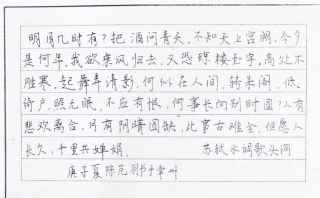 明月几时有?把酒问青天,不知天上宫阙,今夕
是何年,我欲乘风归去,又恐琼楼玉宇,高处不
胜寒,起舞弄清影,何似在人间,转朱阁,低
绮户,照无眠,不应有恨,何事长向别时圆?人有
悲欢离合,月有阴晴圆缺,此事古难全,但愿人
长久,千里共婵娟。 苏轼水调歌头词
庚子夏陈